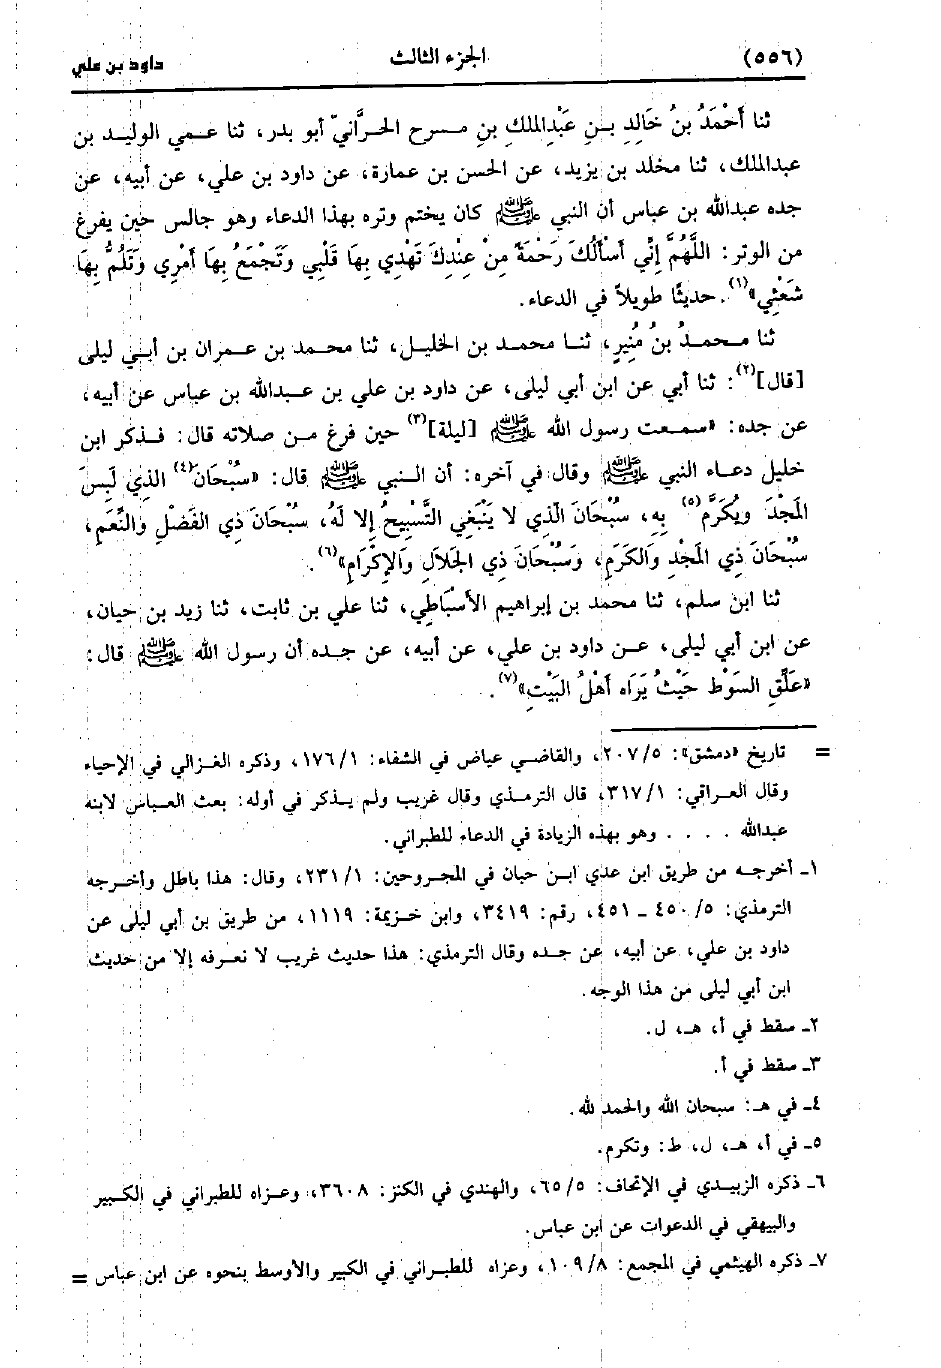 (٥٥٦) الجزء الثالث داود بن علي
ثنا أَحْمَدُ بنُ خَالِدِ بــنِ عَبْدِالملكِ بنِ مـسرح الحرَّانيّ أبو بدر، ثنا عــمي الوليـد بن
عبدالملك، ثنا مخلد بن يزيد، عن الحسن بن عمارة، عن داود بن علي، عن أبيه، عن
جده عبدالله بن عباس أن النبي ﷺ كان يختم وتره بهذا الدعاء وهو جالس حين يفرغ
من الوتر: اللَّهُمَّ إِنِّي أَسْأَلُكَ رَحْمَةً مِنْ عِنْدِكَ تَهْدِي بِهَا قَلْبِي وَتَجْمَعُ بِهَا أَمْرِي وَتَلُمُّ بِهَا
شَعَثِي»(١). حديثًا طويلاً في الدعاء.
ثنا مـحمدُ بنُ مُنِيرٍ، ثنـا محمـد بن الخليل، ثنا محمد بن عـمران بن أبـي ليلى
[قال](٢): ثنا أبي عن ابن أبي ليلى، عن داود بن علي بن عـبدالله بن عباس عن أبيه،
عن جده: «سمـعت رسول الله ﷺ [ليلة](٣) حين فرغ مـن صلاته قال: فـذكر ابن
خليل دعـاء النبي ﷺ وقال في آخره: أن الـنبي ﷺ قال: «سُبْحَانَ(٤) الذي لَبِسَ
المَجْدَ ويُكَرَّمَ(٥) بِهِ، سُبْحَانَ الَّذِي لا يَنْبَغِي التَّسْبِيحُ إلا لَهُ، سُبْحَانَ ذِي الفَضْلِ والنِّعَمِ،
سُبْحَانَ ذِي المَجْدِ وَالكَرَمِ، وَسُبْحَانَ ذِي الجَلالِ وَالإِكْرَامِ»(٦).
ثنا ابن سلم، ثنا محمد بن إبراهيم الأَسْبَاطِي، ثنا علي بن ثابت، ثنا زيد بن حيان،
عن ابن أبي ليلى، عــن داود بن علي، عن أبيه، عن جـده أن رسول الله ﷺ قال:
«عَلِّقِ السَوْط حَيْثُ يَرَاه أَهْلُ البَيْتِ»(٧).
= تاريخ «دمشق»: ٢٠٧/٥، والقاضـي عياض في الشفاء: ١٧٦/١، وذكره الغـزالي في الإحياء
وقال العـراقي: ٣١٧/١، قال الترمـذي وقال غريب ولم يـذكر في أوله: بعث العباس لابنه
عبدالله . . . . وهو بهذه الزيادة في الدعاء للطبراني.
١ـ أخرجـه من طريق ابن عدي ابـن حبان في المجروحين: ٢٣١/١، وقال: هذا باطل وأخـرجه
الترمذي: ٤٥٠/٥ ـ ٤٥١، رقم: ٣٤١٩، وابن خـزيمة: ١١١٩، من طريق بن أبي ليلى عن
داود بن علي، عن أبيه، عن جـده وقال الترمذي: هذا حديث غريب لا نعـرفه إلا من حديث
ابن أبي ليلى من هذا الوجه.
٢ـ سقط في أ، هـ، ل.
٣ـ سقط في أ.
٤ـ في هـ: سبحان الله والحمد لله.
٥ـ في أ، هـ، ل، ط: وتكرم.
٦ـ ذكره الزبيدي في الإتحاف: ٦٥/٥، والهندي في الكنز: ٣٦٠٨، وعـزاه للطبراني في الكـبير
والبيهقي في الدعوات عن ابن عباس.
٧ـ ذكره الهيثمي في المجمع: ١٠٩/٨، وعزاه للطبـراني في الكبير والأوسط بنحوه عن ابن عباس =